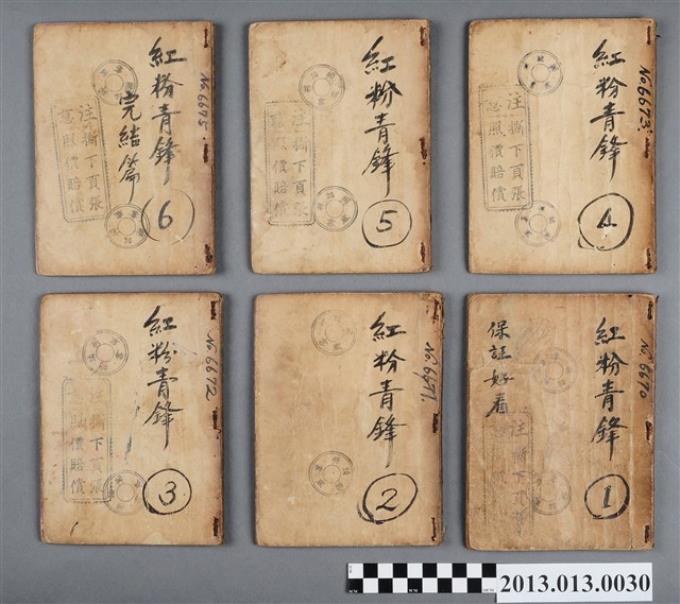 紅粉青鋒
完結篇
6
No 6675.
注撕下頁張
意照價賠償
紅粉青鋒
5
注撕下頁張
意照價賠償
紅粉青鋒
4
No 6673.
注撕下頁張
照價賠償
紅粉青鋒
3
No 6672
注撕下頁張
照價賠償
紅粉青鋒
2
No 6671.
紅粉青鋒
保証好看
1
No 6670
注撕下
2013.013.0030